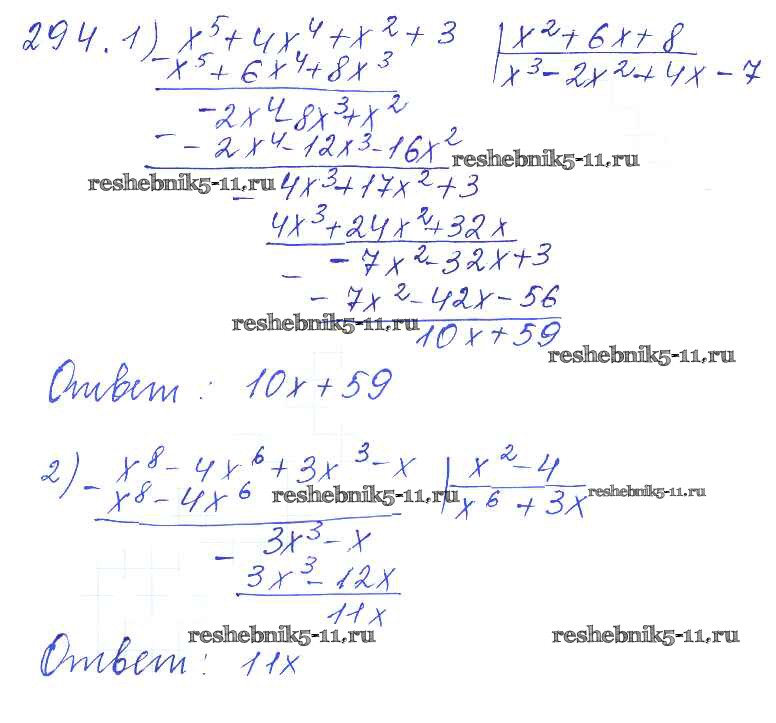 294. 1) x⁵ + 4x⁴ + x² + 3 | x² + 6x + 8
- x⁵ + 6x⁴ + 8x³ | x³ - 2x² + 4x - 7
-2x⁴ - 8x³ + x²
- - 2x⁴ - 12x³ - 16x²
reshebnik5-11.ru
reshebnik5-11.ru
- 4x³ + 17x² + 3
4x³ + 24x² + 32x
- - 7x² - 32x + 3
- 7x² - 42x - 56
reshebnik5-11.ru
10x + 59
reshebnik5-11.ru
Ответ: 10x + 59
2) - x⁸ - 4x⁶ + 3x³ - x | x² - 4
x⁸ - 4x⁶ reshebnik5-11.ru | x⁶ + 3x reshebnik5-11.ru
- 3x³ - x
3x³ - 12x
11x
reshebnik5-11.ru reshebnik5-11.ru
Ответ: 11x